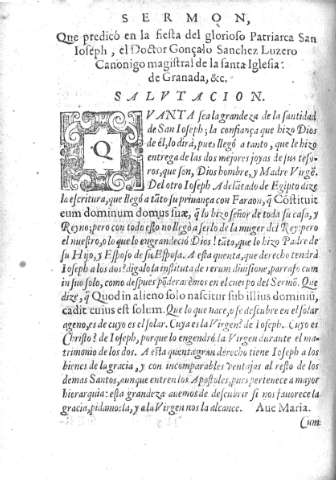 SERMON,
Que predicò en la fiesta del glorioso Patriarca San
Ioseph, el Doctor Gonçalo Sanchez Luzero
Canonigo magistral de la santa Iglesia
de Granada, &c.
SALVTACION.
QVANTA sea la grandeza de la santidad
de San Ioseph; la confiança que hizo Dios
de el, lo dirà, pues llegò a tanto, que le hizo
entrega de las dos mejores joyas de sus teso-
ros, que son, Dios hombre, y Madre Virgẽ.
Del otro Ioseph Adelãtado de Egipto dize
la escritura, que llegò a tãto su priuança con Faraon, q̃ Constituit
eum dominum domus suæ, q̃ lo hizo señor de toda su casa, y
Reyno; pero con todo esto no llegò a serlo de la muger del Rey: pero
el nuestro, o lo que lo engrandeciò Dios! tãto, que lo hizo Padre de
su Hijo, y Esposo de su Esposa. A esta quenta, que derecho tendrà
Ioseph a los dos? digalo la instituta de rerum diuisione, parrafo cum
in suo solo, como despues põderaremos en el cuerpo del Sermõ. Que
dize, q̃ Quod in alieno solo nascitur sub illius dominiũ,
cadit cuius est solum. Que lo que nace, o se descubre en el solar
ageno, es de cuyo es el solar. Cuya es la Virgen? de Ioseph. Cuyo es
Christo? de Ioseph, porque lo engendrò la Virgen durante el ma-
trimonio de los dos. A esta quenta gran derecho tiene Ioseph a los
bienes de la gracia, y con incomparables ventajas al resto de los
demas Santos, aunque entren los Apostoles, pues pertenece a mayor
hierarquia: esta grandeza auemos de descubrir si nos fauorece la
gracia, pidamosla, y a la Virgen nos la alcance. Aue Maria.
Cum